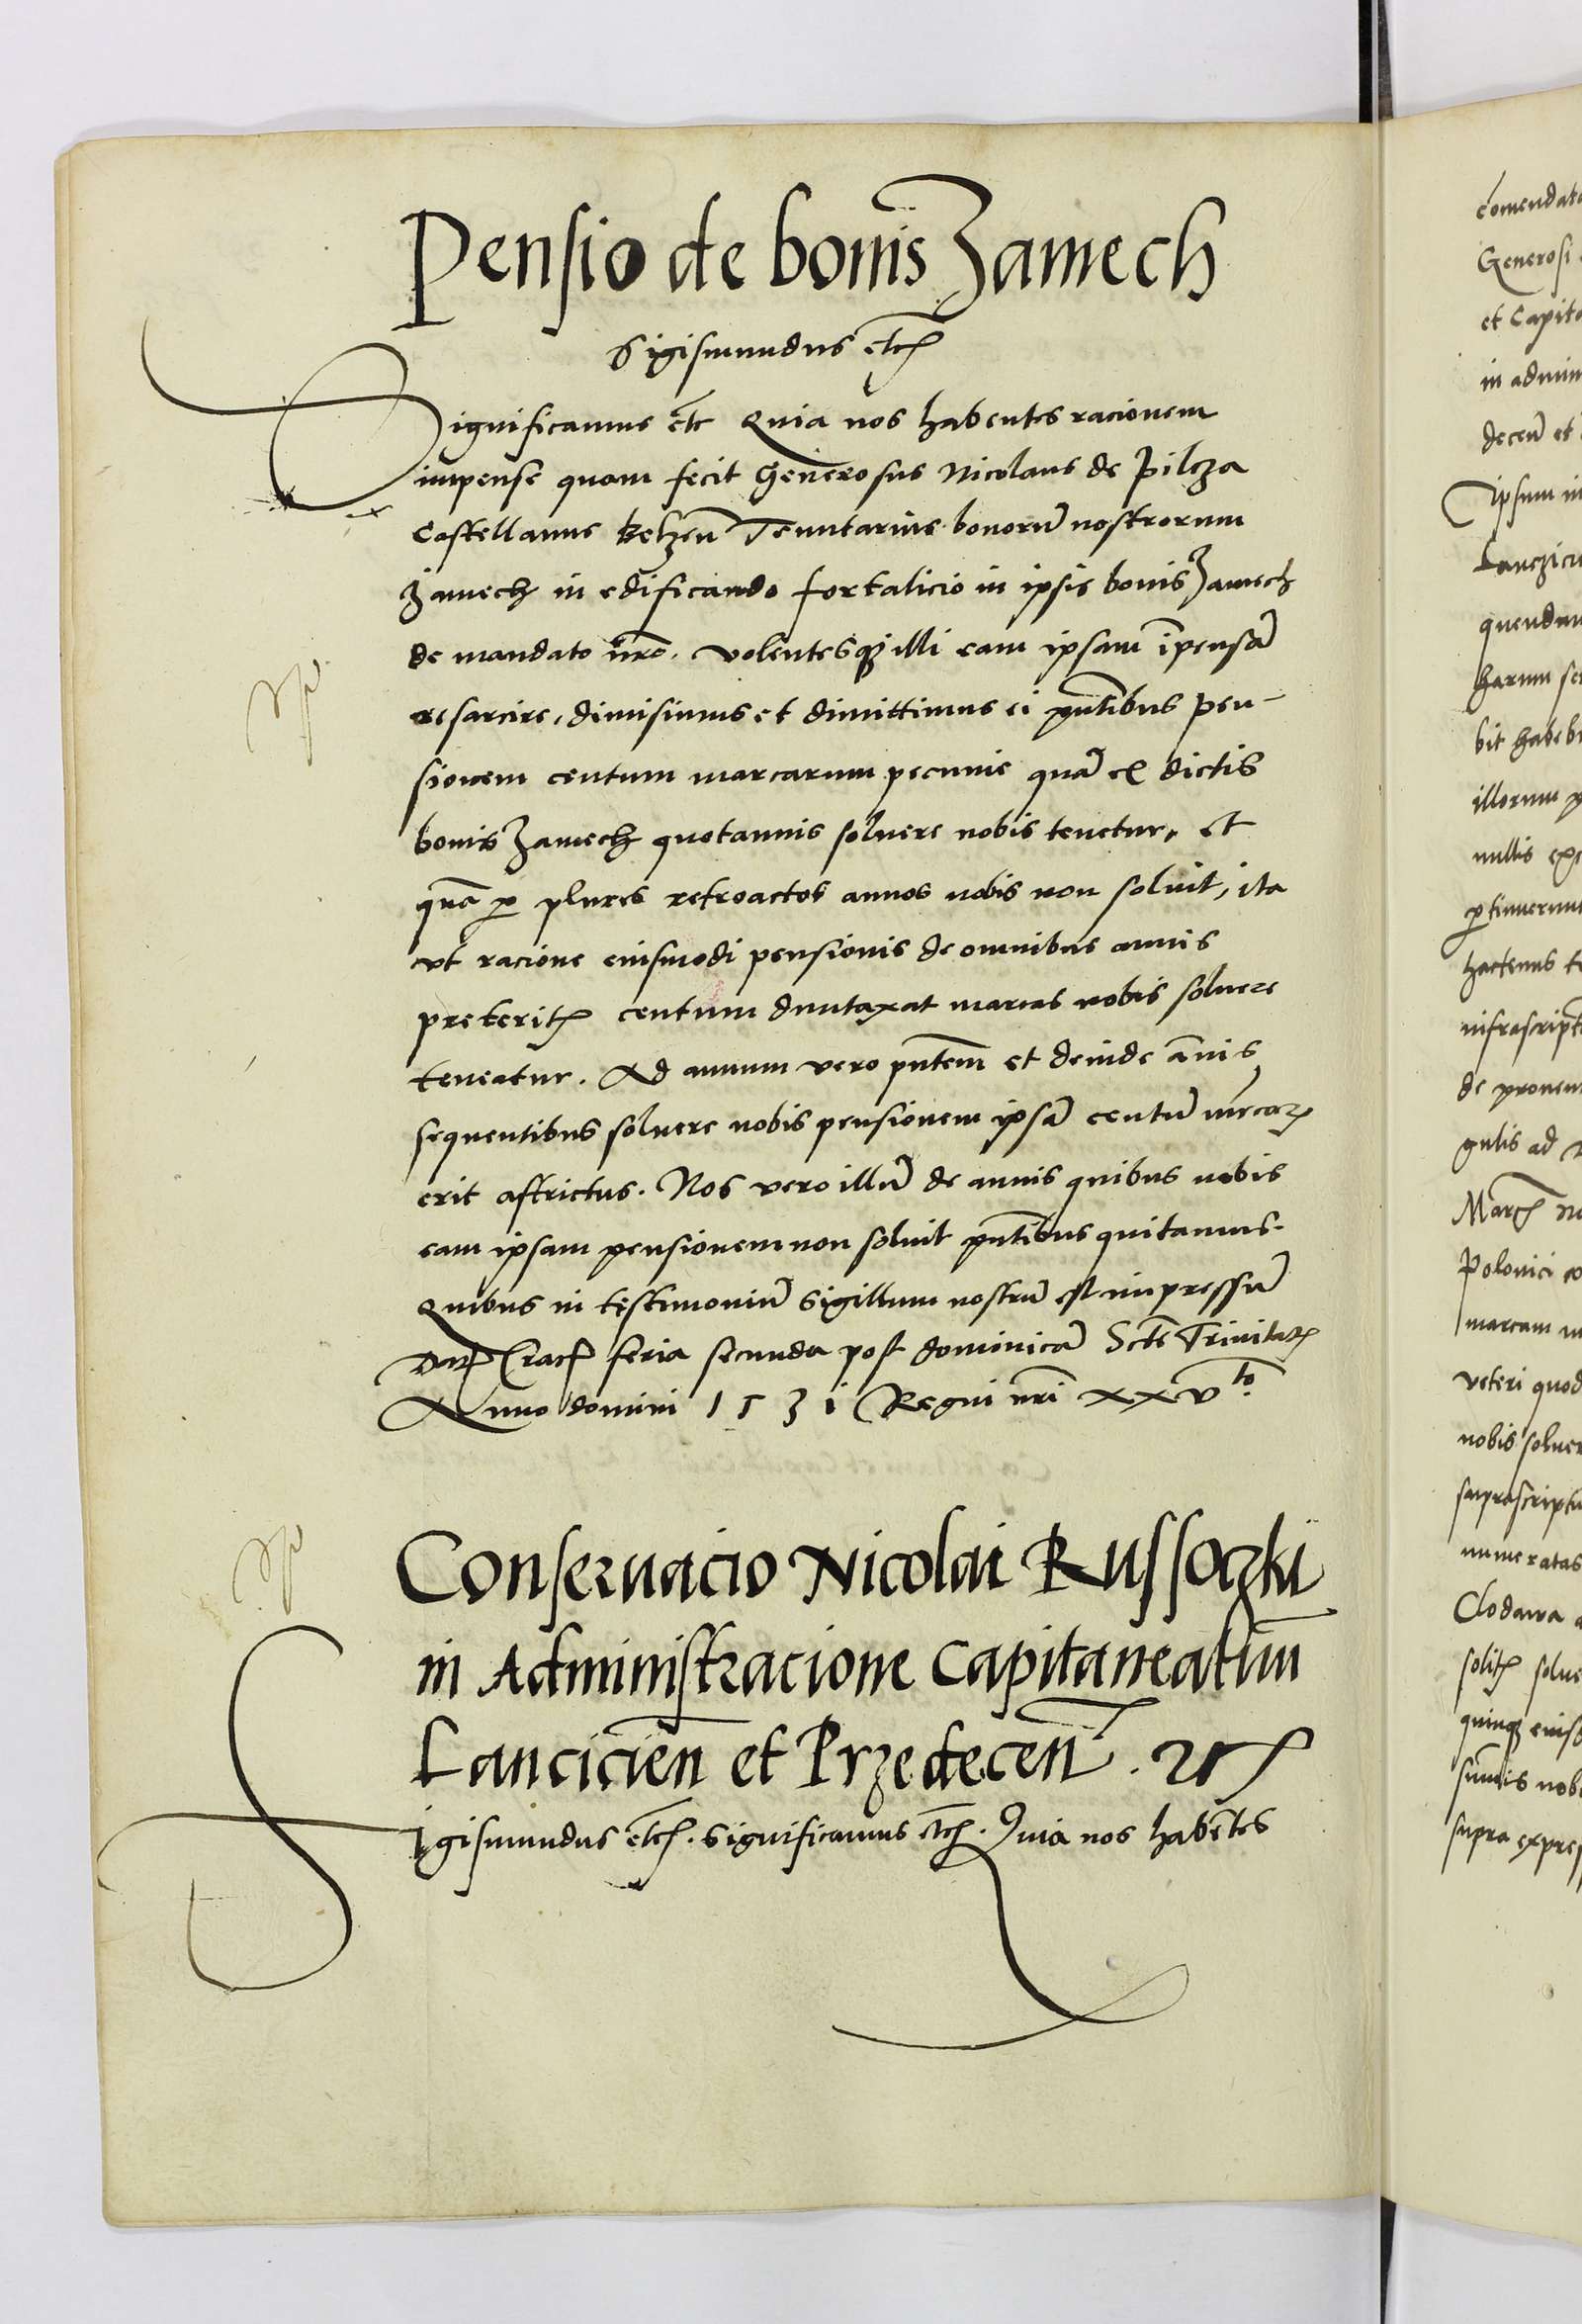 Pensio de bonis Zamech
Sigismundus etc
Significamus etc Quia nos habentes racionem
impense quam fecit Generosus Nicolaus de Pilcza
Castellanus Belzen̄ Tenutarius bonorū nostrorum
Zamech in edificando fortalicio in ipsis bonis Zamech
de mandato nr̄o. volentesqʒ illi eam ipsam īpensā
resarcire, dimisimus et dimittimus ei pn̄tibus pen-
sionem centum marcarum pecunie quā ex dictis
bonis Zamech quotannis soluere nobis tenetur, et
quā ꝑ plures retroactos annos nobis non soluit, ita
vt racione eiusmodi pensionis de omnibus annis
preteritꝭ centum duntaxat marcas nobis soluere
teneatur. Ad annum vero pn̄tem et deinde ānis
sequentibus soluere nobis pensionem ipsā centū mrcarꝝ
erit astrictus. Nos vero illū de annis quibus nobis
eam ipsam pensionem non soluit pn̄tibus quitamus.
Quibus in testimoniū sigillum nostrū est impressū
Datꝭ Cracꝭ feria secunda post dominicā Scte Trinitatꝭ
Anno domini 1531 Regni nr̄i xxvto
Conseruacio Nicolai Russoczki
in Administracione Capitaneatuū
Lancicien̄ et Przedecen̄.
Sigismundus etc. significamus etc. Quia nos habētes
comendato
Generosi
et Capita
in admin
decen̄ et
Ipsum in
Lanczici
quendam
harum se
bit habeb
illorum p
nullis exc
ꝑtinuerunt
hactenus t
infrascript
de prouen
gulis ad
Marcꝭ n
Polonici co
marcam m
veteri quod
nobis soluer
suprascriptu
numeratas
Clodawa a
solitꝭ solue
quinqʒ eiusd
sum̄is nob
supra expres